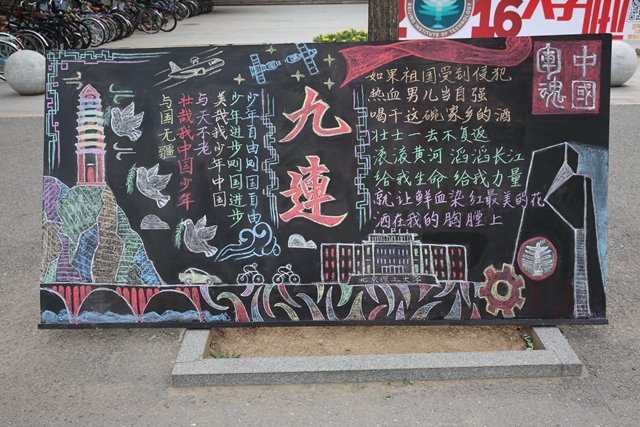 中國
軍魂
如果祖国受到侵犯
热血男儿当自强
喝干这碗家乡的酒
壮士一去不复返
滚滚黄河 滔滔长江
给我生命 给我力量
就让鲜血染红最美的花
洒在我的胸膛上
九連
少年自由则国自由
少年进步则国进步
美哉我少年中国
与天不老
壮哉我中国少年
与国无疆
北京理工大学
16